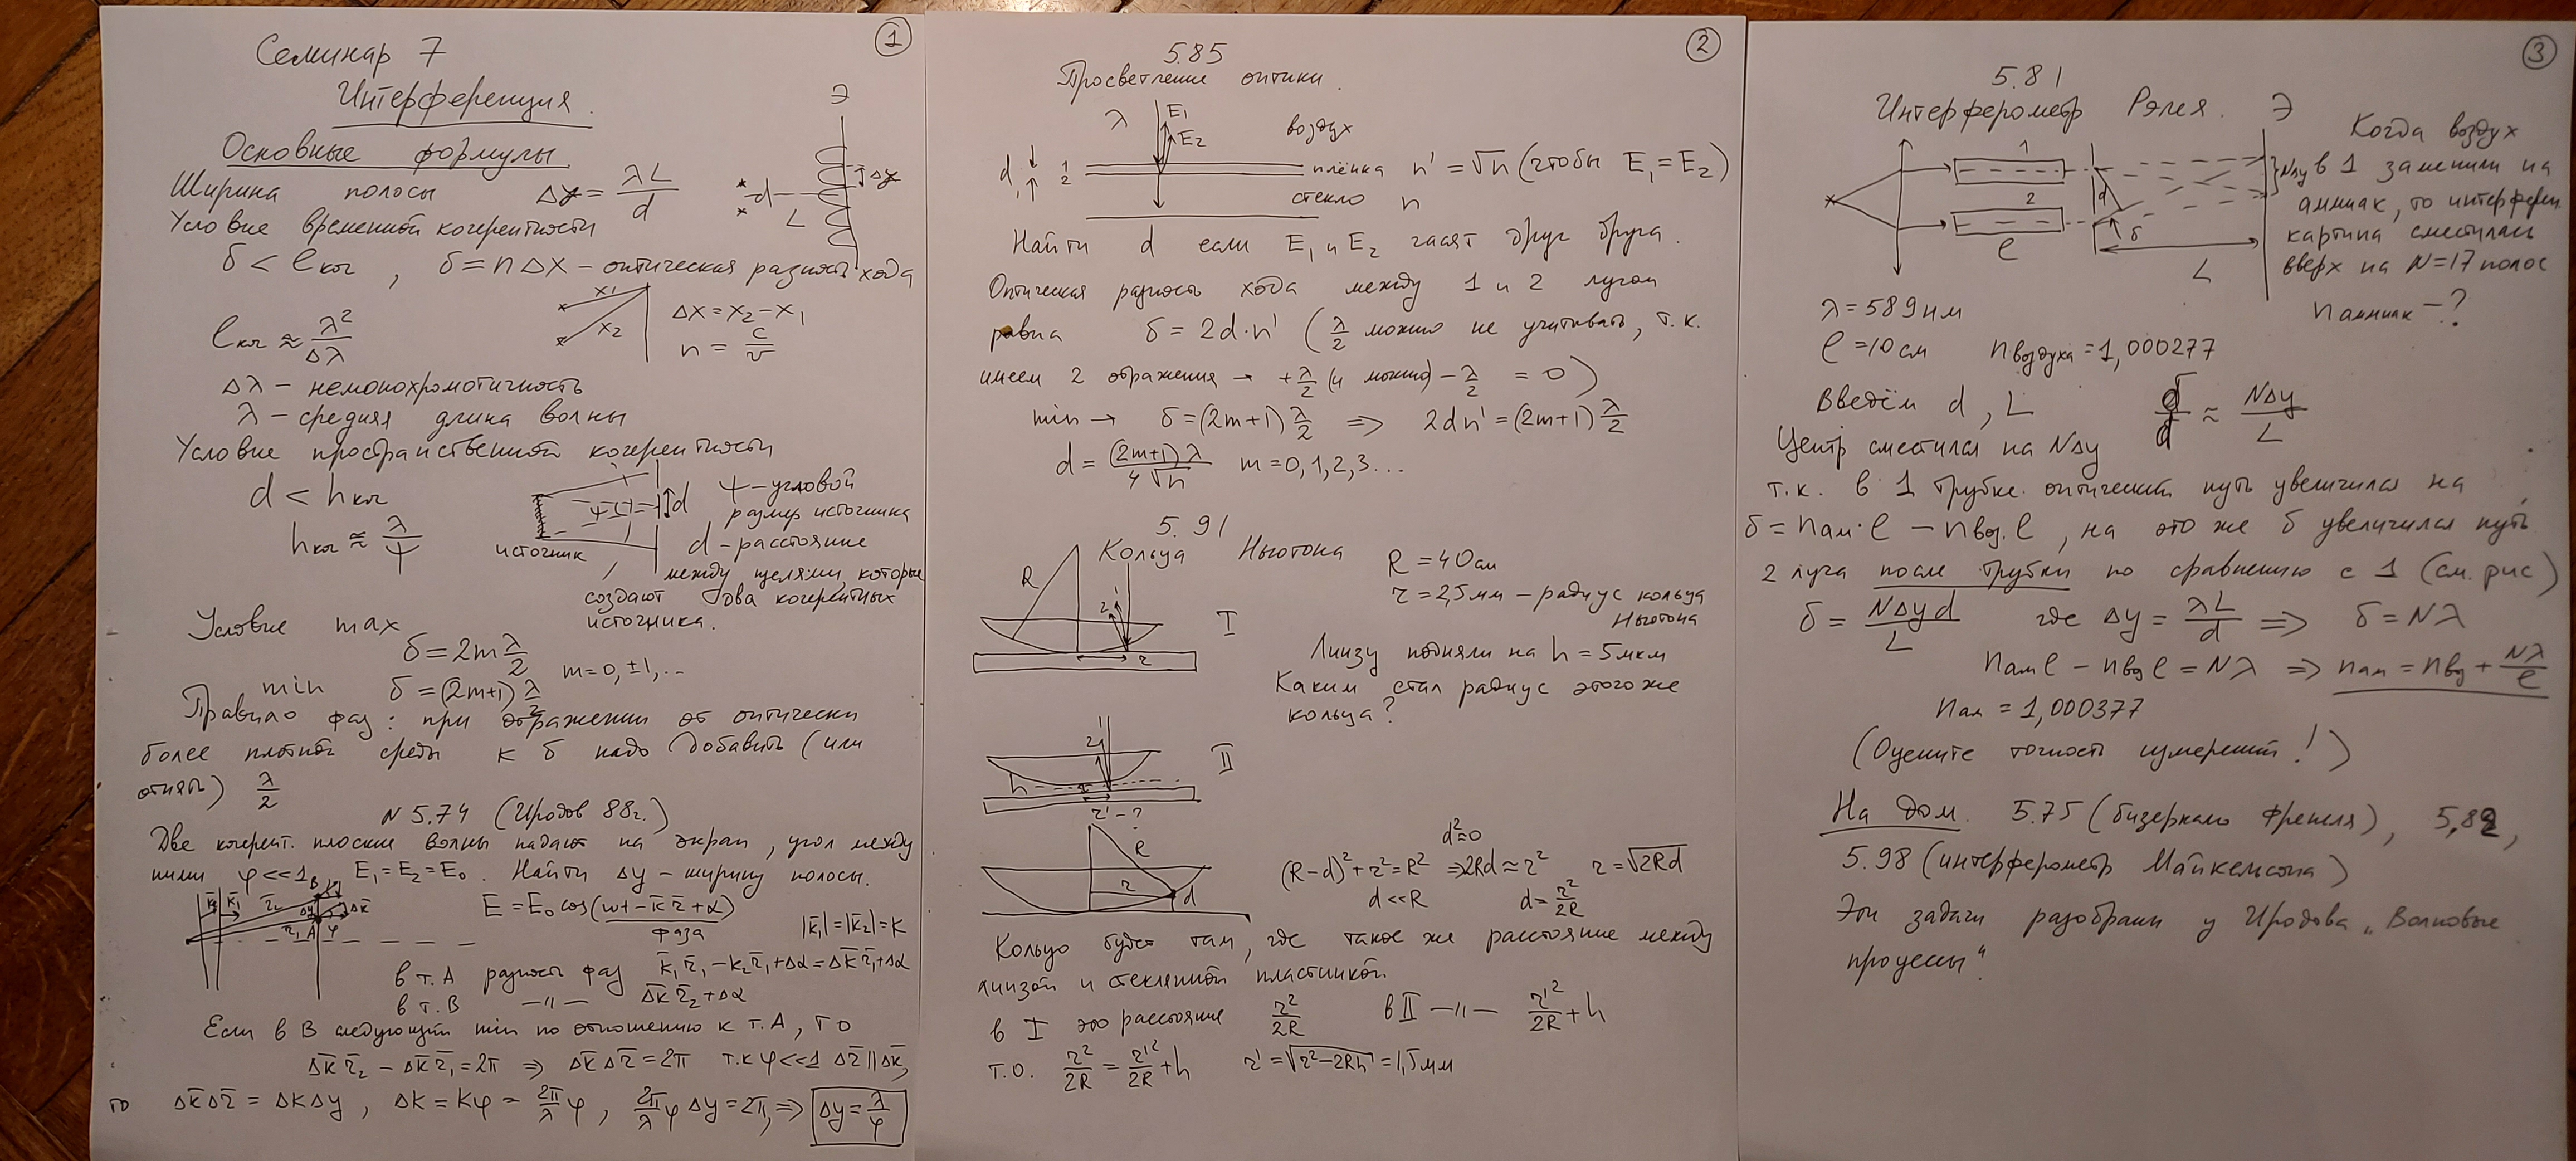 Семинар 7
①
Интерференция.
Основные формулы
Ширина полосы Δx = λL/d
Э
d
L
Δx
Условие временной когерентности
δ < lког, δ = nΔx – оптическая разность хода
lког ≈ λ²/Δλ
x₁
x₂
Δx = x₂ – x₁
n = c/v
Δλ – немонохроматичность
λ – средняя длина волны
Условие пространственной когерентности
d < hког
hког ≈ λ/ψ
ψ
d
источник
ψ – угловой
размер источника
d – расстояние
между щелями, которые
создают два когерентных
источника.
Условие max
δ = 2m λ/2
min
δ = (2m+1) λ/2
m = 0, ±1, ...
Правило фаз: при отражении от оптически
более плотной среды к δ надо (добавить (или
отнять) λ/2
N 5.74 (Иродов 88г.)
Две когерент. плоские волны падают на экран, угол между
ними φ << 1, E₁ = E₂ = E₀. Найти Δy – ширину полосы.
E = E₀cos(ωt – k̄r̄ + α)
фаза
|k̄₁| = |k̄₂| = k
в т. A разность фаз k̄₁r̄₁ – k̄₂r̄₁ + Δα = Δk̄r̄₁ + Δα
в т. B –"– Δk̄r̄₂ + Δα
Если в B следующий min по отношению к т. A, то
Δk̄r̄₂ – Δk̄r̄₁ = 2π ⇒ Δk̄Δr̄ = 2π т.к φ << 1 Δr̄ || Δk̄,
то Δk̄Δr̄ = ΔkΔy, Δk = kφ = 2π/λ φ, 2π/λ φΔy = 2π, ⇒ Δy = λ/φ
②
5.85
Просветление оптики.
λ
E₁
E₂
воздух
d
1
2
плёнка n' = √n (чтобы E₁ = E₂)
стекло n
Найти d если E₁ и E₂ гасят друг друга.
Оптическая разность хода между 1 и 2 лучом
равна δ = 2d·n' (λ/2 можно не учитывать, т.к.
имеем 2 отражения → +λ/2 и можно – λ/2 = 0)
min → δ = (2m+1) λ/2 ⇒ 2dn' = (2m+1) λ/2
d = (2m+1)λ/4√n m = 0, 1, 2, 3...
5.91
Кольца Ньютона
R = 40 см
r = 2,5 мм – радиус кольца
Ньютона
Линзу подняли на h = 5 мкм
Каким стал радиус этого же
кольца?
R
r
I
h
r' – ?
II
R
r
d
(R–d)² + r² = R² ⇒ 2Rd ≈ r²
d² = 0
d << R
d = r²/2R
r = √2Rd
Кольцо будет там, где такое же расстояние между
линзой и стеклянной пластинкой.
в I это расстояние r²/2R в II –"– r'²/2R + h
Т.О. r²/2R = r'²/2R + h r' = √r² – 2Rh = 1,5 мм
③
5.81
Интерферометр Рэлея.
1
2
l
d
δ
L
Э
Когда воздух
в 1 заменили на
аммиак, то интерферен.
картина сместилась
вверх на N = 17 полос
λ = 589 нм
l = 10 см nвоздуха = 1,000277
nаммиак – ?
Введём d, L
δ/d ≈ NΔy/L
Центр сместился на NΔy
т.к. в 1 трубке оптический путь увеличился на
δ = nам·l – nвоз.l, на это же δ увеличился путь
2 луча после трубки по сравнению с 1 (см. рис)
δ = NΔyd/L где Δy = λL/d ⇒ δ = Nλ
nамl – nвозl = Nλ ⇒ nам = nвоз + Nλ/l
nам = 1,000377
(Оцените точность измерений!)
На дом. 5.75 (бизеркало Френеля), 5.82,
5.98 (интерферометр Майкельсона)
Эти задачи разобраны у Иродова „Волновые
процессы“.